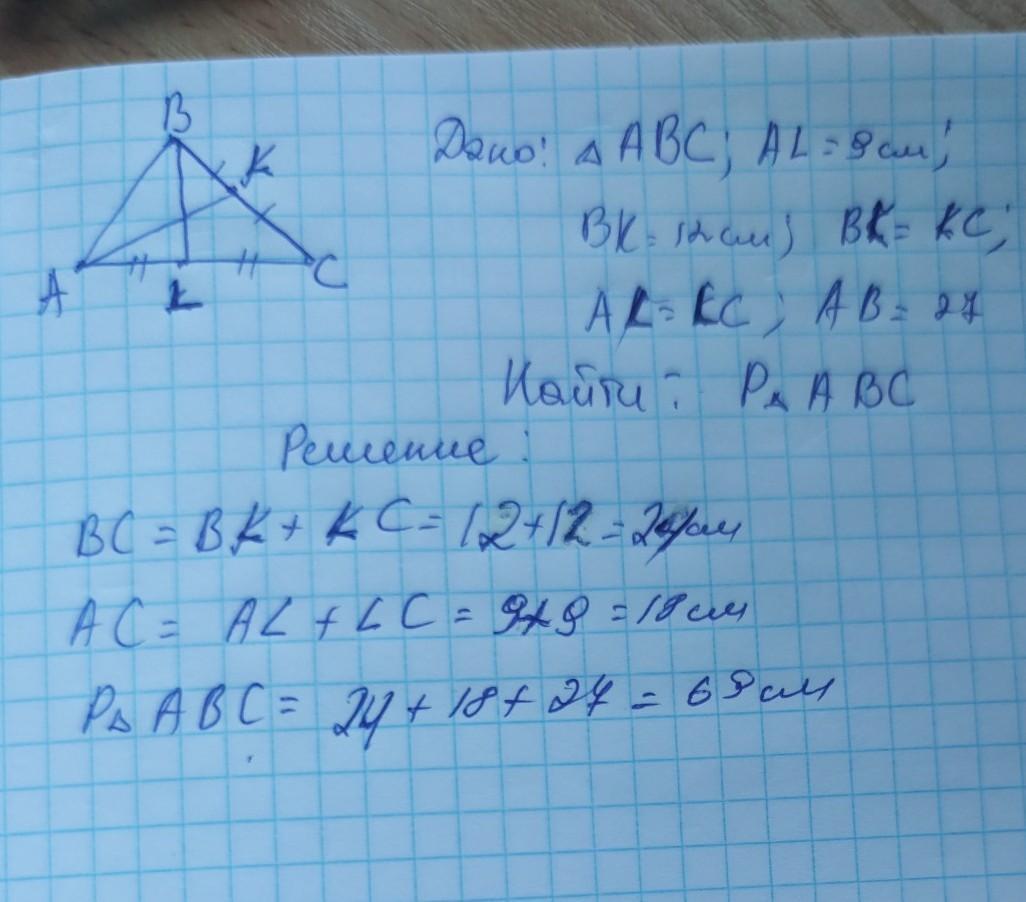 B
K
A
L
C
Дано: △ ABC; AL = 9 см;
BK = 12 см; BK = KC;
AL = LC; AB = 27
Найти: P△ ABC
Решение:
BC = BK + KC = 12 + 12 = 24 см
AC = AL + LC = 9 + 9 = 18 см
P△ ABC = 24 + 18 + 27 = 69 см